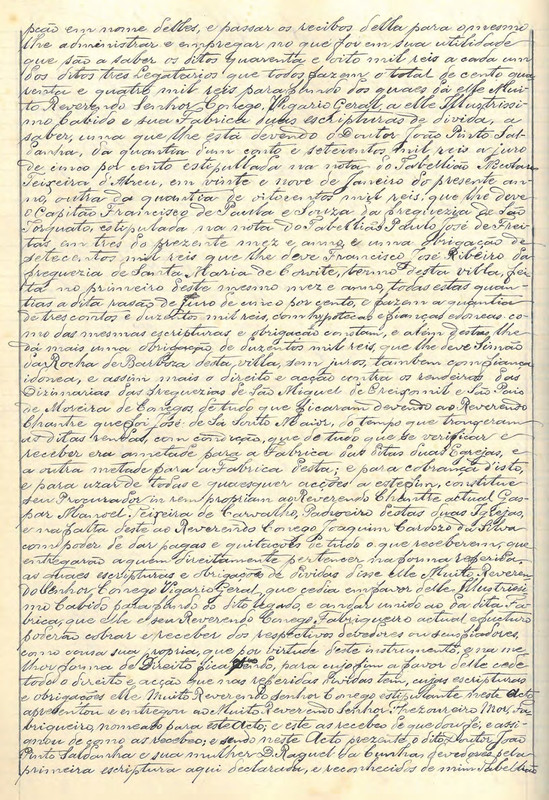 pção em nome delles, e passar os recibos della para o mesmo
lhe administrar e empregar no que for em sua utilidade
que são a saber os ditos quarenta e oito mil reis a cada um
dos ditos tres Legatarios que todos fazem o total de cento qua
renta e quatro mil reis para fundo dos quaes dá elle Mui
to Reverendo Senhor Conego Vigario Geral, a elle Illustrissi
mo Cabido e sua Fabrica duas escripturas de divida, a
saber, uma que lhe está devendo o Doutor João Pinto Sal
danha, da quantia d'um conto e setecentos mil reis a juro
de cinco por cento estipullada na nota do Tabellião Nicolau
Teixeira d'Abreu, em vinte e nove de Janeiro do presente an
no, outra da quantia de oitocentos mil reis, que lhe deve
o Capitão Francisco de Paula e Souza da freguezia de São
Torquato, estipulada na nota do Tabellião Paulo José de Frei
tas, em tres do prezente mez e anno, e uma obrigação de
setecentos mil reis que lhe deve Francisco José Ribeiro da
freguezia de Santa Maria de Corvite, termo desta villa, fei
ta no primeiro deste mesmo mez e anno, todas estas quan
tias a dita rasão de juro de cinco por cento, e fazem a quantia
de tres contos e duzentos mil reis, com hypotecas e fianças edoneas co
mo das mesmas escripturas e obrigação constam, e alem destas, lhe
dá mais uma obrigação de duzentos mil reis, que lhe deve Simão
da Rocha de Barboza desta villa, sem juros, tambem com fiança
idonea, e assim mais o direito e acção contra os rendeiros das
Dizimarias das freguezias de São Miguel de Creixomil e São Paio
de Moreira de Conegos, de tudo que ficaram devendo ao Reverendo
Chantre que foi José de Sá Souto Maior, do tempo que trouxeram
as ditas rendas, com condição, que de tudo que se verificar e
receber será ametade para a Fabrica das ditas duas Egrejas, e
a outra metade para a Fabrica desta; e para cobrança disto,
e para uzar de todas e quaesquer acções a este fim, constitue
seu Procurador in rem propriam ao Reverendo Chantre actual Gas
par Manoel Teixeira de Carvalho, Padroeiro destas duas Igrejas,
e na falta deste ao Reverendo Conego Joaquim Cardozo da Silva
com poder de dar pagas e quitações de tudo o que receberem, que
entregarão a quem direitamente pertencer na forma referida,
as quaes escripturas e obrigações de dividas disse elle Muito Reveren
do Senhor Conego Vigario Geral, que cedia em favor delle Illustrissi
mo Cabido para fundo do dito legado, e andar unido ao da dita Fa
brica, que elle e seu Reverendo Conego Fabriqueiro actual e futuro
poderão cobrar e receber dos respectivos devedores ou seus fiadores,
como cousa sua propria, que por virtude deste instrumento, e na me
lhor forma de Direito fica sendo, para cujo fim a favor delle cede
todo o direito e acção que nas referidas dividas tem, cujas escripturas
e obrigações elle Muito Reverendo Senhor Conego estipulante neste Acto
apresentou e entregou ao Muito Reverendo Senhor Thezoureiro Mór, Fa
briqueiro, nomeado para este Acto; e este as recebeo de que dou fé, e assi
gnou de como as recebeo; e sendo neste Acto prezente o dito Doutor João
Pinto Saldanha e sua mulher D. Raquel da Cunha, devedores pela
primeira escriptura aqui declarada, e reconhecidos de mim Tabellião